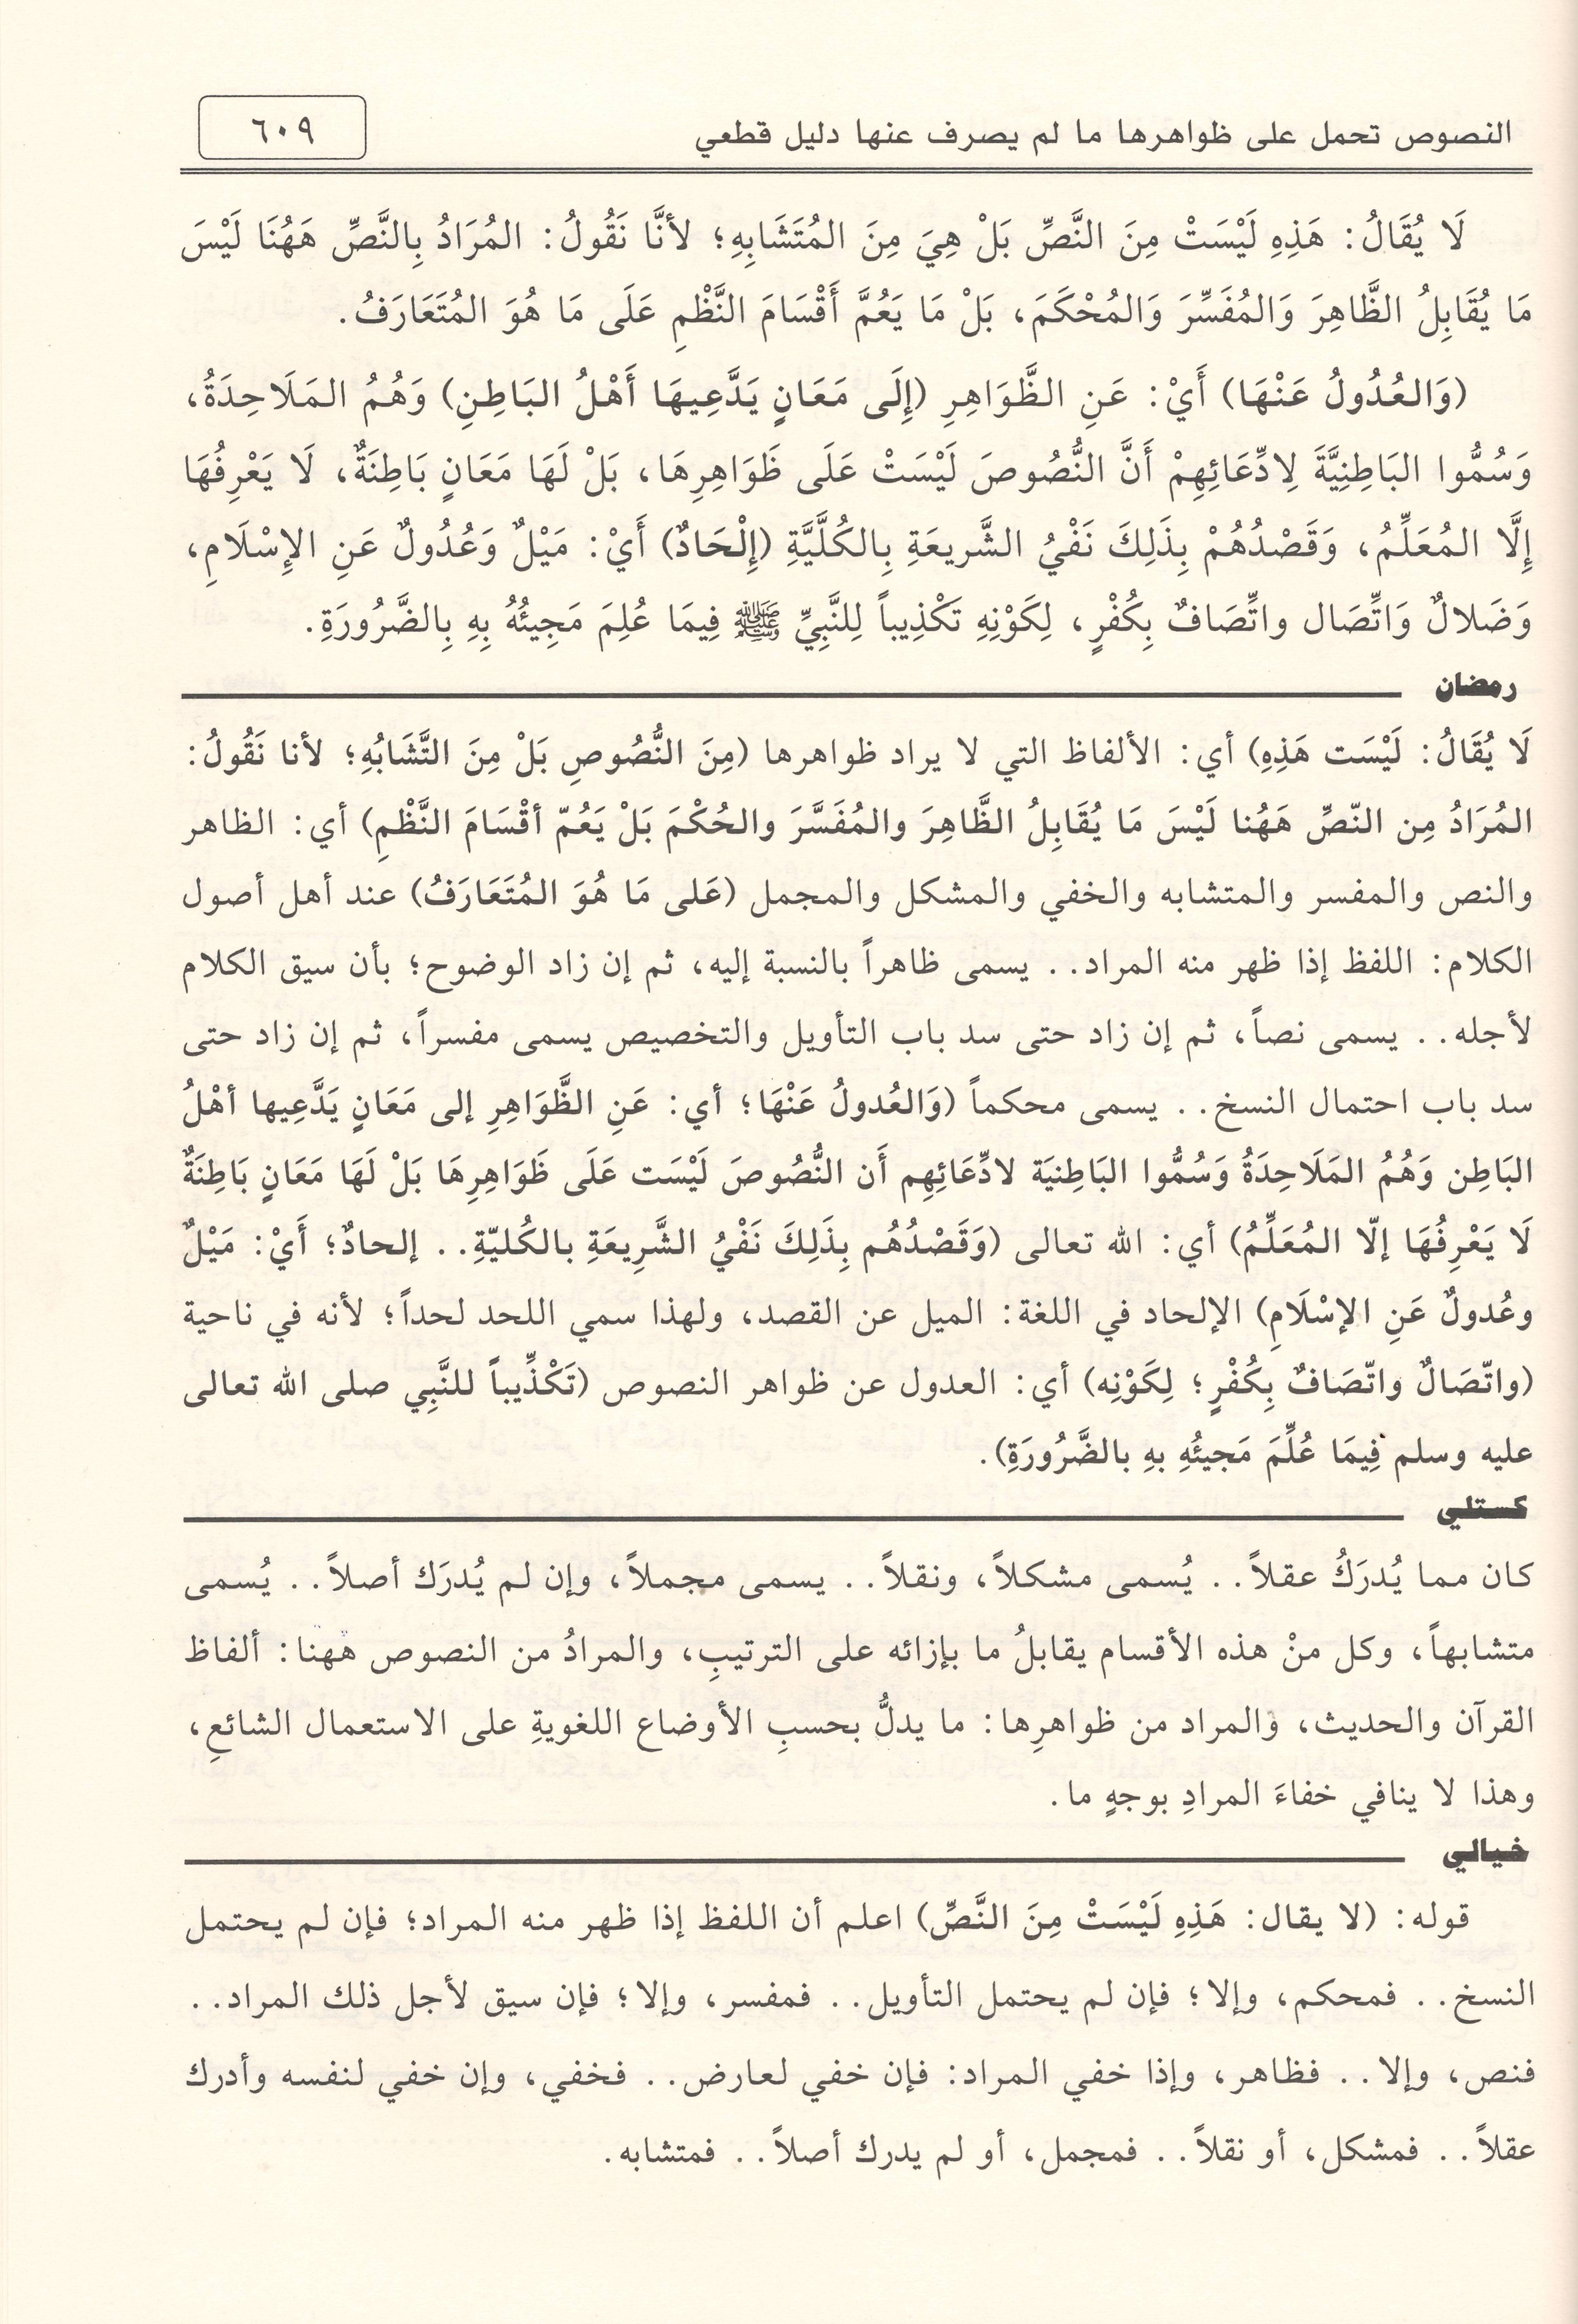 النصوص تحمل على ظواهرها ما لم يصرف عنها دليل قطعي
٦٠٩
لَا يُقَالُ: هَذِهِ لَيْسَتْ مِنَ النَّصِّ بَلْ هِيَ مِنَ المُتَشَابِهِ؛ لأنَّا نَقُولُ: المُرَادُ بِالنَّصِّ هَهُنَا لَيْسَ
مَا يُقَابِلُ الظَّاهِرَ وَالمُفَسِّرَ وَالمُحْكَمَ، بَلْ مَا يَعُمَّ أَقْسَامَ النَّظْمِ عَلَى مَا هُوَ المُتَعَارَفُ.
(وَالعُدُولُ عَنْهَا) أَيْ: عَنِ الظَّوَاهِرِ (إِلَى مَعَانٍ يَدَّعِيهَا أَهْلُ البَاطِنِ) وَهُمُ المَلَاحِدَةُ،
وَسُمُّوا البَاطِنِيَّةَ لِادِّعَائِهِمْ أَنَّ النُّصُوصَ لَيْسَتْ عَلَى ظَوَاهِرِهَا، بَلْ لَهَا مَعَانٍ بَاطِنَةٌ، لَا يَعْرِفُهَا
إِلَّا المُعَلِّمُ، وَقَصْدُهُمْ بِذَلِكَ نَفْيُ الشَّرِيعَةِ بِالكُلَّيَّةِ (إِلْحَادٌ) أَيْ: مَيْلٌ وَعُدُولٌ عَنِ الإِسْلَامِ،
وَضَلالٌ وَاتِّصَال واتِّصَافٌ بِكُفْرٍ، لِكَوْنِهِ تَكْذِيباً لِلنَّبِيِّ ﷺ فِيمَا عُلِمَ مَجِيئُهُ بِهِ بِالضَّرُورَةِ.
رمضان
لَا يُقَالُ: لَيْسَت هَذِهِ) أي: الألفاظ التي لا يراد ظواهرها (مِنَ النُّصُوصِ بَلْ مِنَ التَّشَابُهِ؛ لأنا نَقُولُ:
المُرَادُ مِن النّصِّ هَهُنا لَيْسَ مَا يُقَابِلُ الظَّاهِرَ والمُفَسَّرَ والحُكْمَ بَلْ يَعُمّ أقْسَامَ النَّظْمِ) أي: الظاهر
والنص والمفسر والمتشابه والخفي والمشكل والمجمل (عَلى مَا هُوَ المُتَعَارَفُ) عند أهل أصول
الكلام: اللفظ إذا ظهر منه المراد.. يسمى ظاهراً بالنسبة إليه، ثم إن زاد الوضوح؛ بأن سيق الكلام
لأجله.. يسمى نصاً، ثم إن زاد حتى سد باب التأويل والتخصيص يسمى مفسراً، ثم إن زاد حتى
سد باب احتمال النسخ.. يسمى محكماً (وَالعُدولُ عَنْهَا؛ أي: عَنِ الظَّوَاهِرِ إلى مَعَانٍ يَدَّعِيها أهْلُ
البَاطِن وَهُمُ المَلَاحِدَةُ وَسُمُّوا البَاطِنيَة لادِّعَائِهِم أَن النُّصُوصَ لَيْسَت عَلَى ظَوَاهِرِهَا بَلْ لَهَا مَعَانٍ بَاطِنَةٌ
لَا يَعْرِفُهَا إلّا المُعَلِّمُ) أي: الله تعالى (وَقَصْدُهُم بِذَلِكَ نَفْيُ الشَّرِيعَةِ بالكُليّةِ.. إلحادٌ؛ أَيْ: مَيْلٌ
وعُدولٌ عَنِ الإسْلَامِ) الإلحاد في اللغة: الميل عن القصد، ولهذا سمي اللحد لحداً؛ لأنه في ناحية
(واتّصَالٌ واتّصَافٌ بِكُفْرٍ؛ لِكَوْنِه) أي: العدول عن ظواهر النصوص (تَكْذِّيباً للنَّبِي صلى الله تعالى
عليه وسلم فِيمَا عُلِّمَ مَجيئُهِ بهِ بالضَّرُورَةِ).
كستلي
كان مما يُدرَكُ عقلاً.. يُسمى مشكلاً، ونقلاً.. يسمى مجملاً، وإن لم يُدرَك أصلاً.. يُسمى
متشابهاً، وكل منْ هذه الأقسام يقابلُ ما بإزائه على الترتيبِ، والمرادُ من النصوص ههنا: ألفاظ
القرآن والحديث، والمراد من ظواهرِها: ما يدلُّ بحسبِ الأوضاع اللغويةِ على الاستعمال الشائعِ،
وهذا لا ينافي خفاءَ المرادِ بوجهٍ ما.
خيالي
قوله: (لا يقال: هَذِهِ لَيْسَتْ مِنَ النَّصِّ) اعلم أن اللفظ إذا ظهر منه المراد؛ فإن لم يحتمل
النسخ.. فمحكم، وإلا؛ فإن لم يحتمل التأويل.. فمفسر، وإلا؛ فإن سيق لأجل ذلك المراد..
فنص، وإلا.. فظاهر، وإذا خفي المراد: فإن خفي لعارض.. فخفي، وإن خفي لنفسه وأدرك
عقلاً.. فمشكل، أو نقلاً.. فمجمل، أو لم يدرك أصلاً.. فمتشابه.